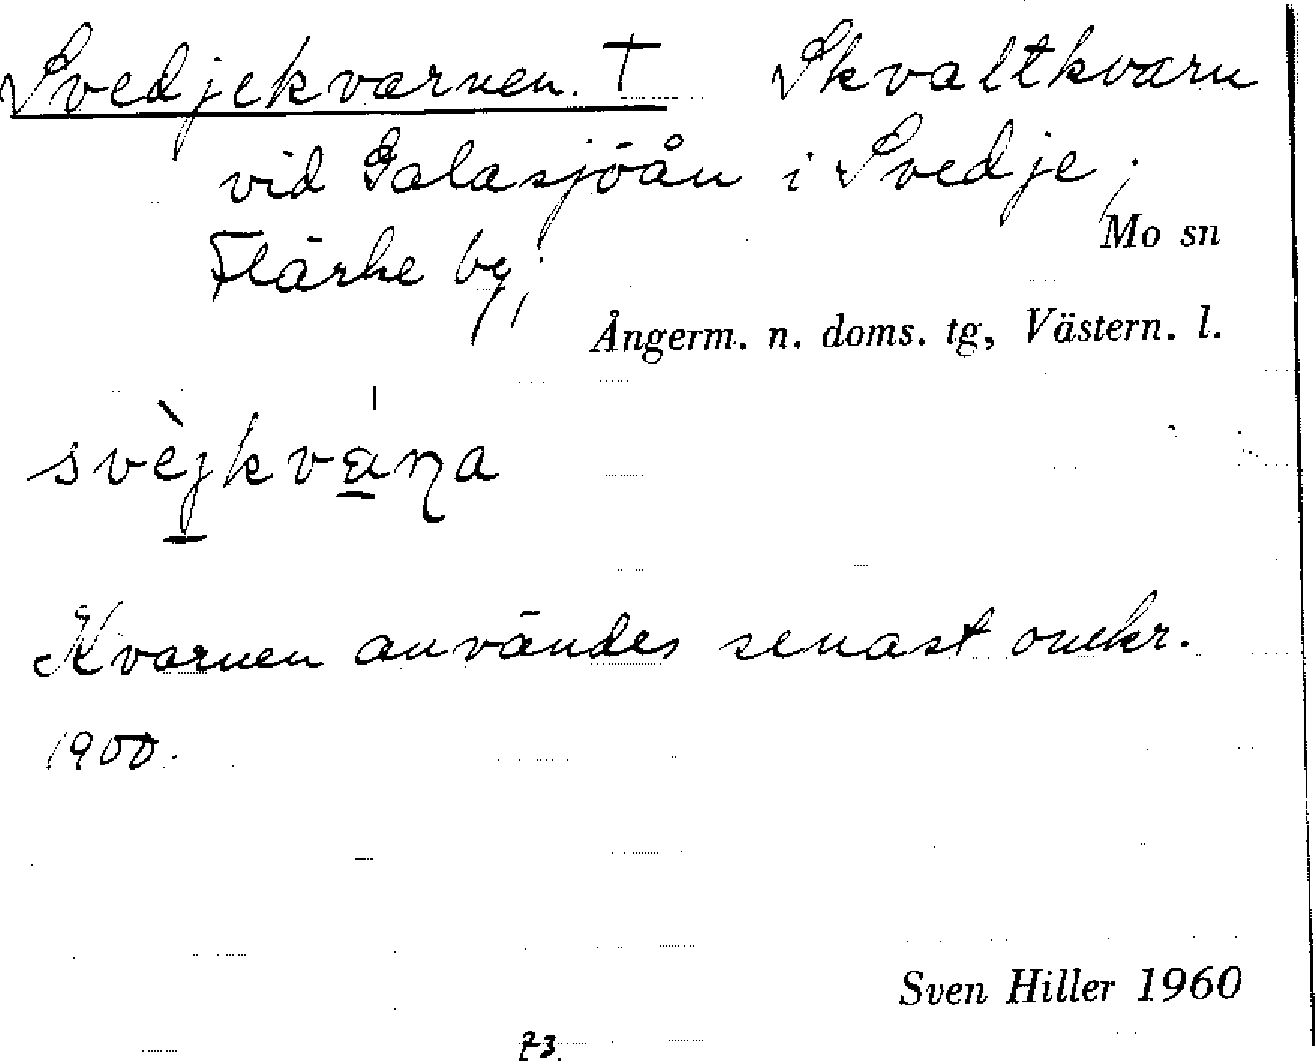 Svedjekvarnen. † Skvaltkvarn
vid Galasjöån i Svedje,
Mo sn
Flärke by,
Ångerm. n. doms. tg, Västern. l.
svèjkvána
Kvarnen användes senast omkr.
1900.
Sven Hiller 1960
73.